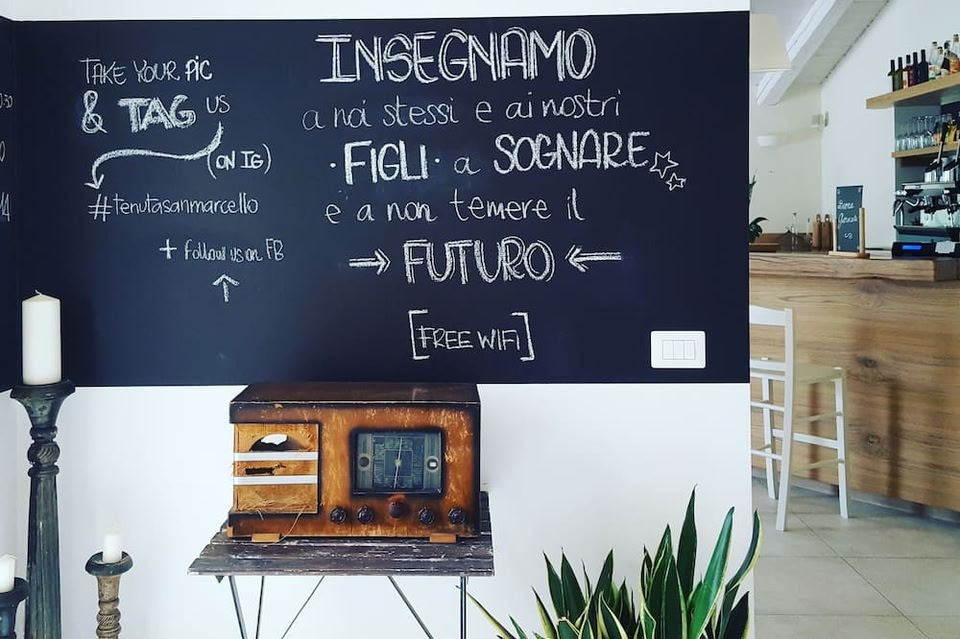 TAKE YOUR PIC
& TAG US
(ON IG)
#tenutasanmarcello
+ follow us on FB
INSEGNAMO
a noi stessi e ai nostri
· FIGLI · a SOGNARE
e a non temere il
FUTURO
[FREE WIFI]